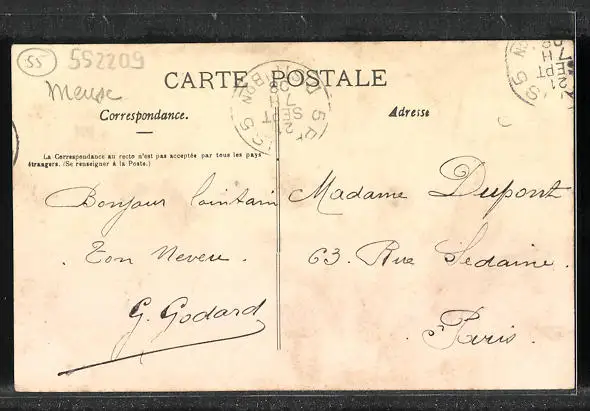 55
552209
Meuse
CARTE POSTALE
Correspondance.
Adresse
La Correspondance au recto n'est pas acceptée par tous les pays
étrangers. (Se renseigner à la Poste.)
Bonjour lointain
Ton Neveu.
G. Godard
Madame Dupont
63. Rue Sedaine.
Paris.
7 H
21
SEPT
08
7 H
21
SEPT